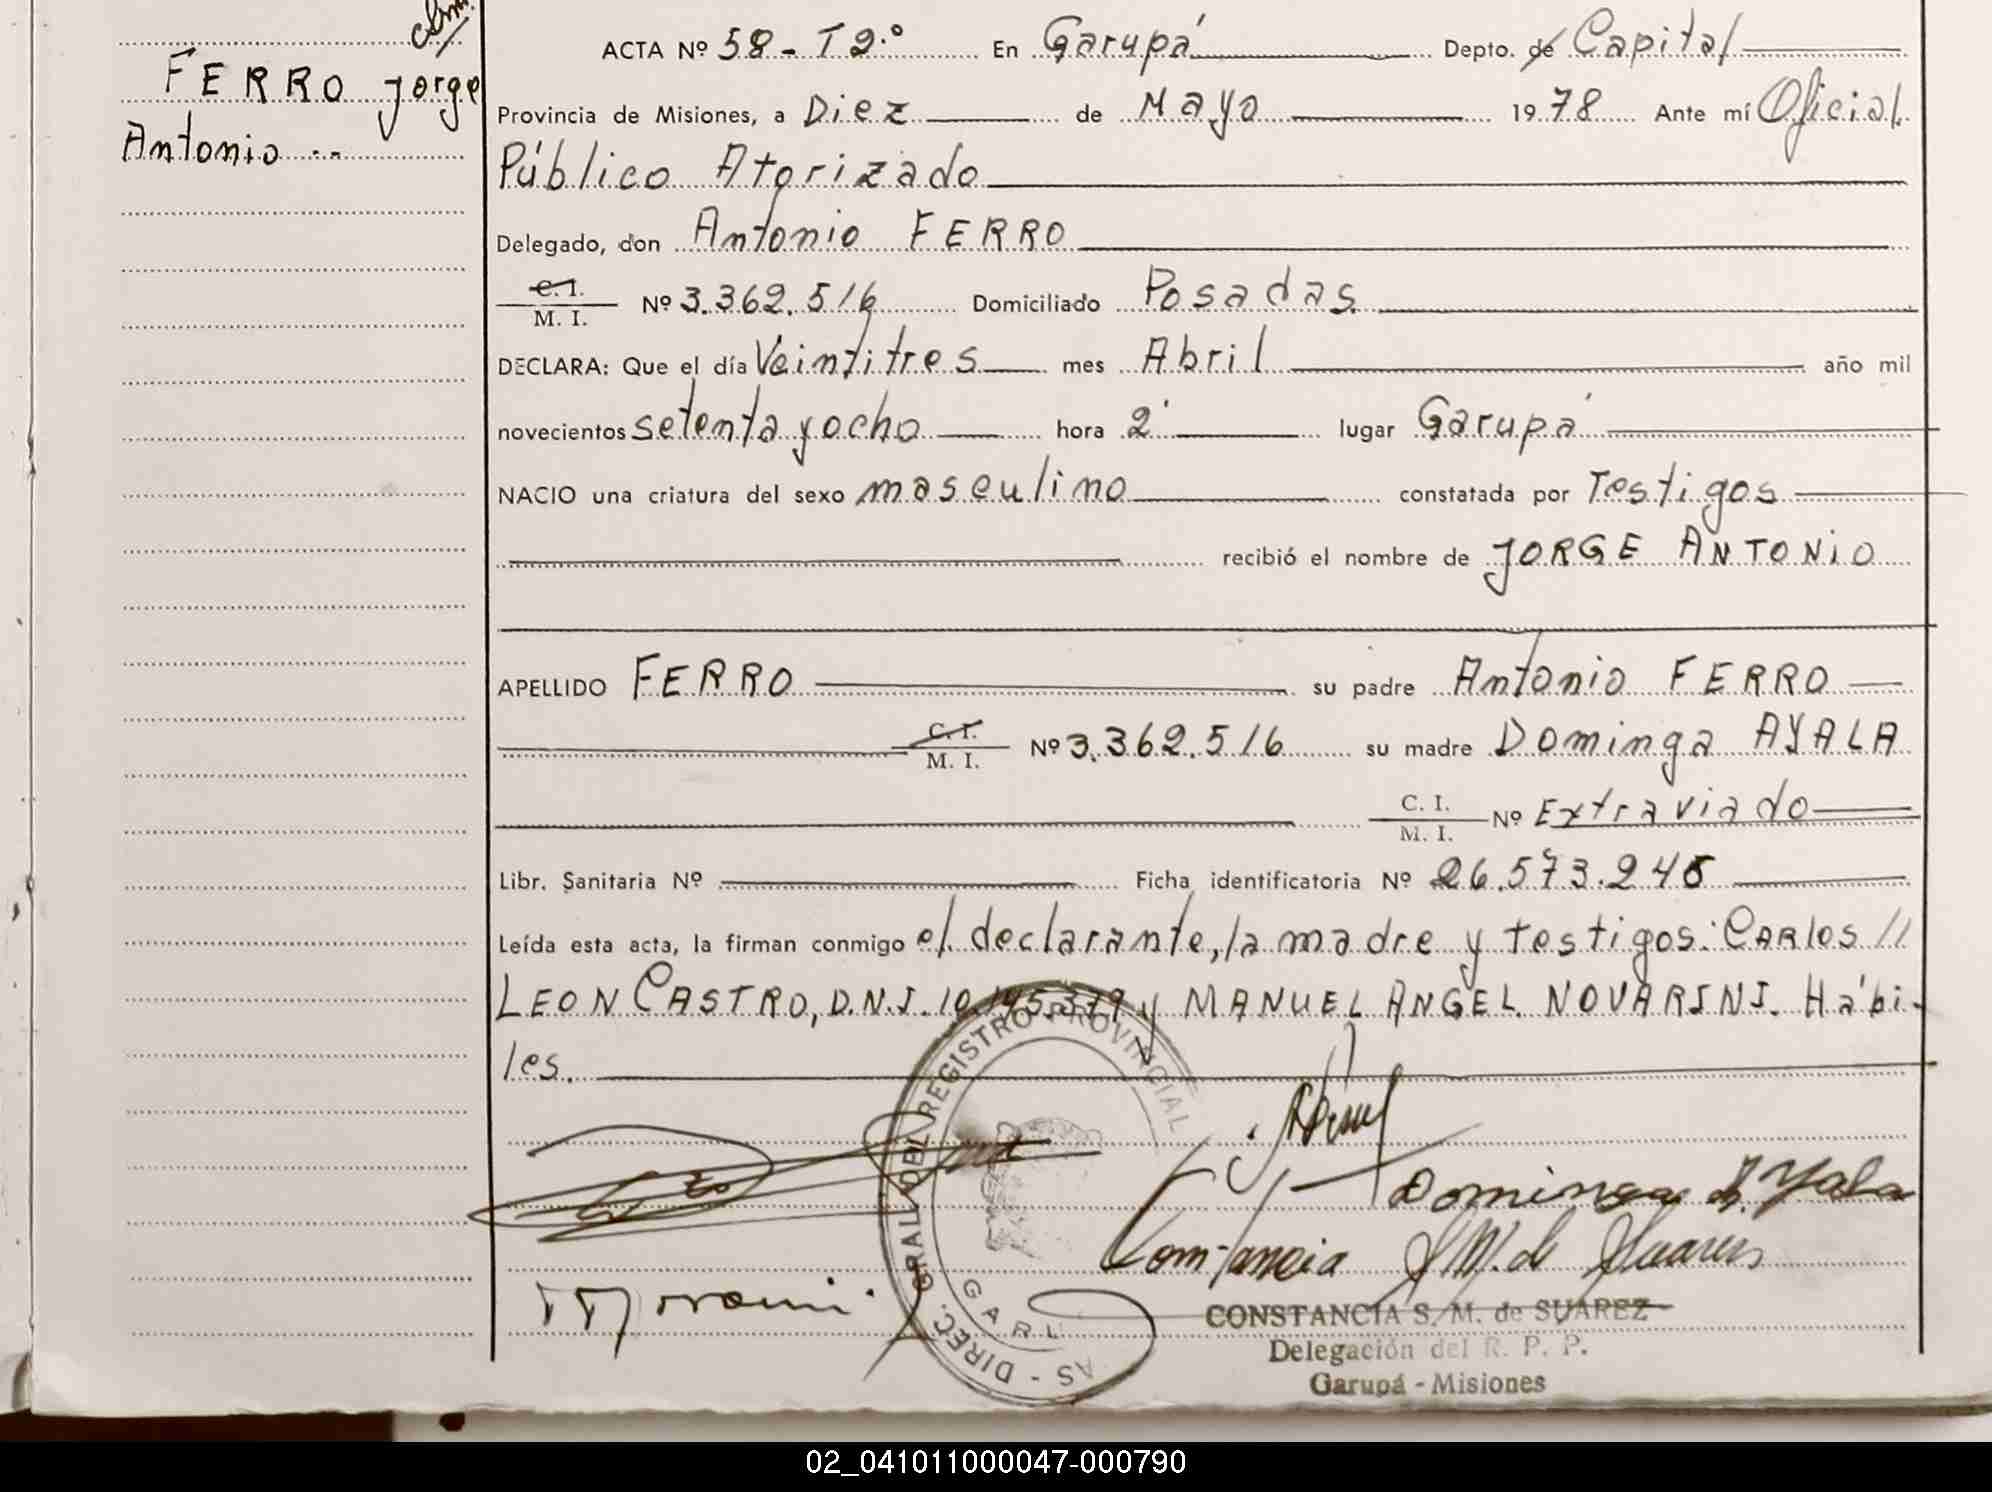 FERRO Jorge
Antonio --
ACTA Nº 58 - T 2.º En Garupá Depto. de Capital
Provincia de Misiones, a Diez de Mayo 1978 Ante mí Oficial
Público Atorizado
Delegado, don Antonio FERRO
C. I.
M. I. Nº 3.362.516 Domiciliado Posadas
DECLARA: Que el día Veintitres mes Abril año mil
novecientos setenta y ocho hora 2 lugar Garupá
NACIO una criatura del sexo masculino constatada por Testigos
recibió el nombre de JORGE ANTONIO
APELLIDO FERRO su padre Antonio FERRO
C. I.
M. I. Nº 3.362.516 su madre Dominga AYALA
C. I.
M. I. Nº Extraviado
Libr. Sanitaria Nº Ficha identificatoria Nº 26.573.245
Leída esta acta, la firman conmigo el declarante, la madre y testigos: CARLOS //
LEON CASTRO, D.N.I. 10.145.379 y MANUEL ANGEL NOVARINI. Hábi-
les.
DIREC. GRAL. DEL REGISTRO PROVINCIAL
AS -
GARU
Dominga A. Yala
Constancia S. M. de Suarez
CONSTANCIA S. M. de SUAREZ
Delegación del R. P. P.
Garupá - Misiones
02_041011000047-000790